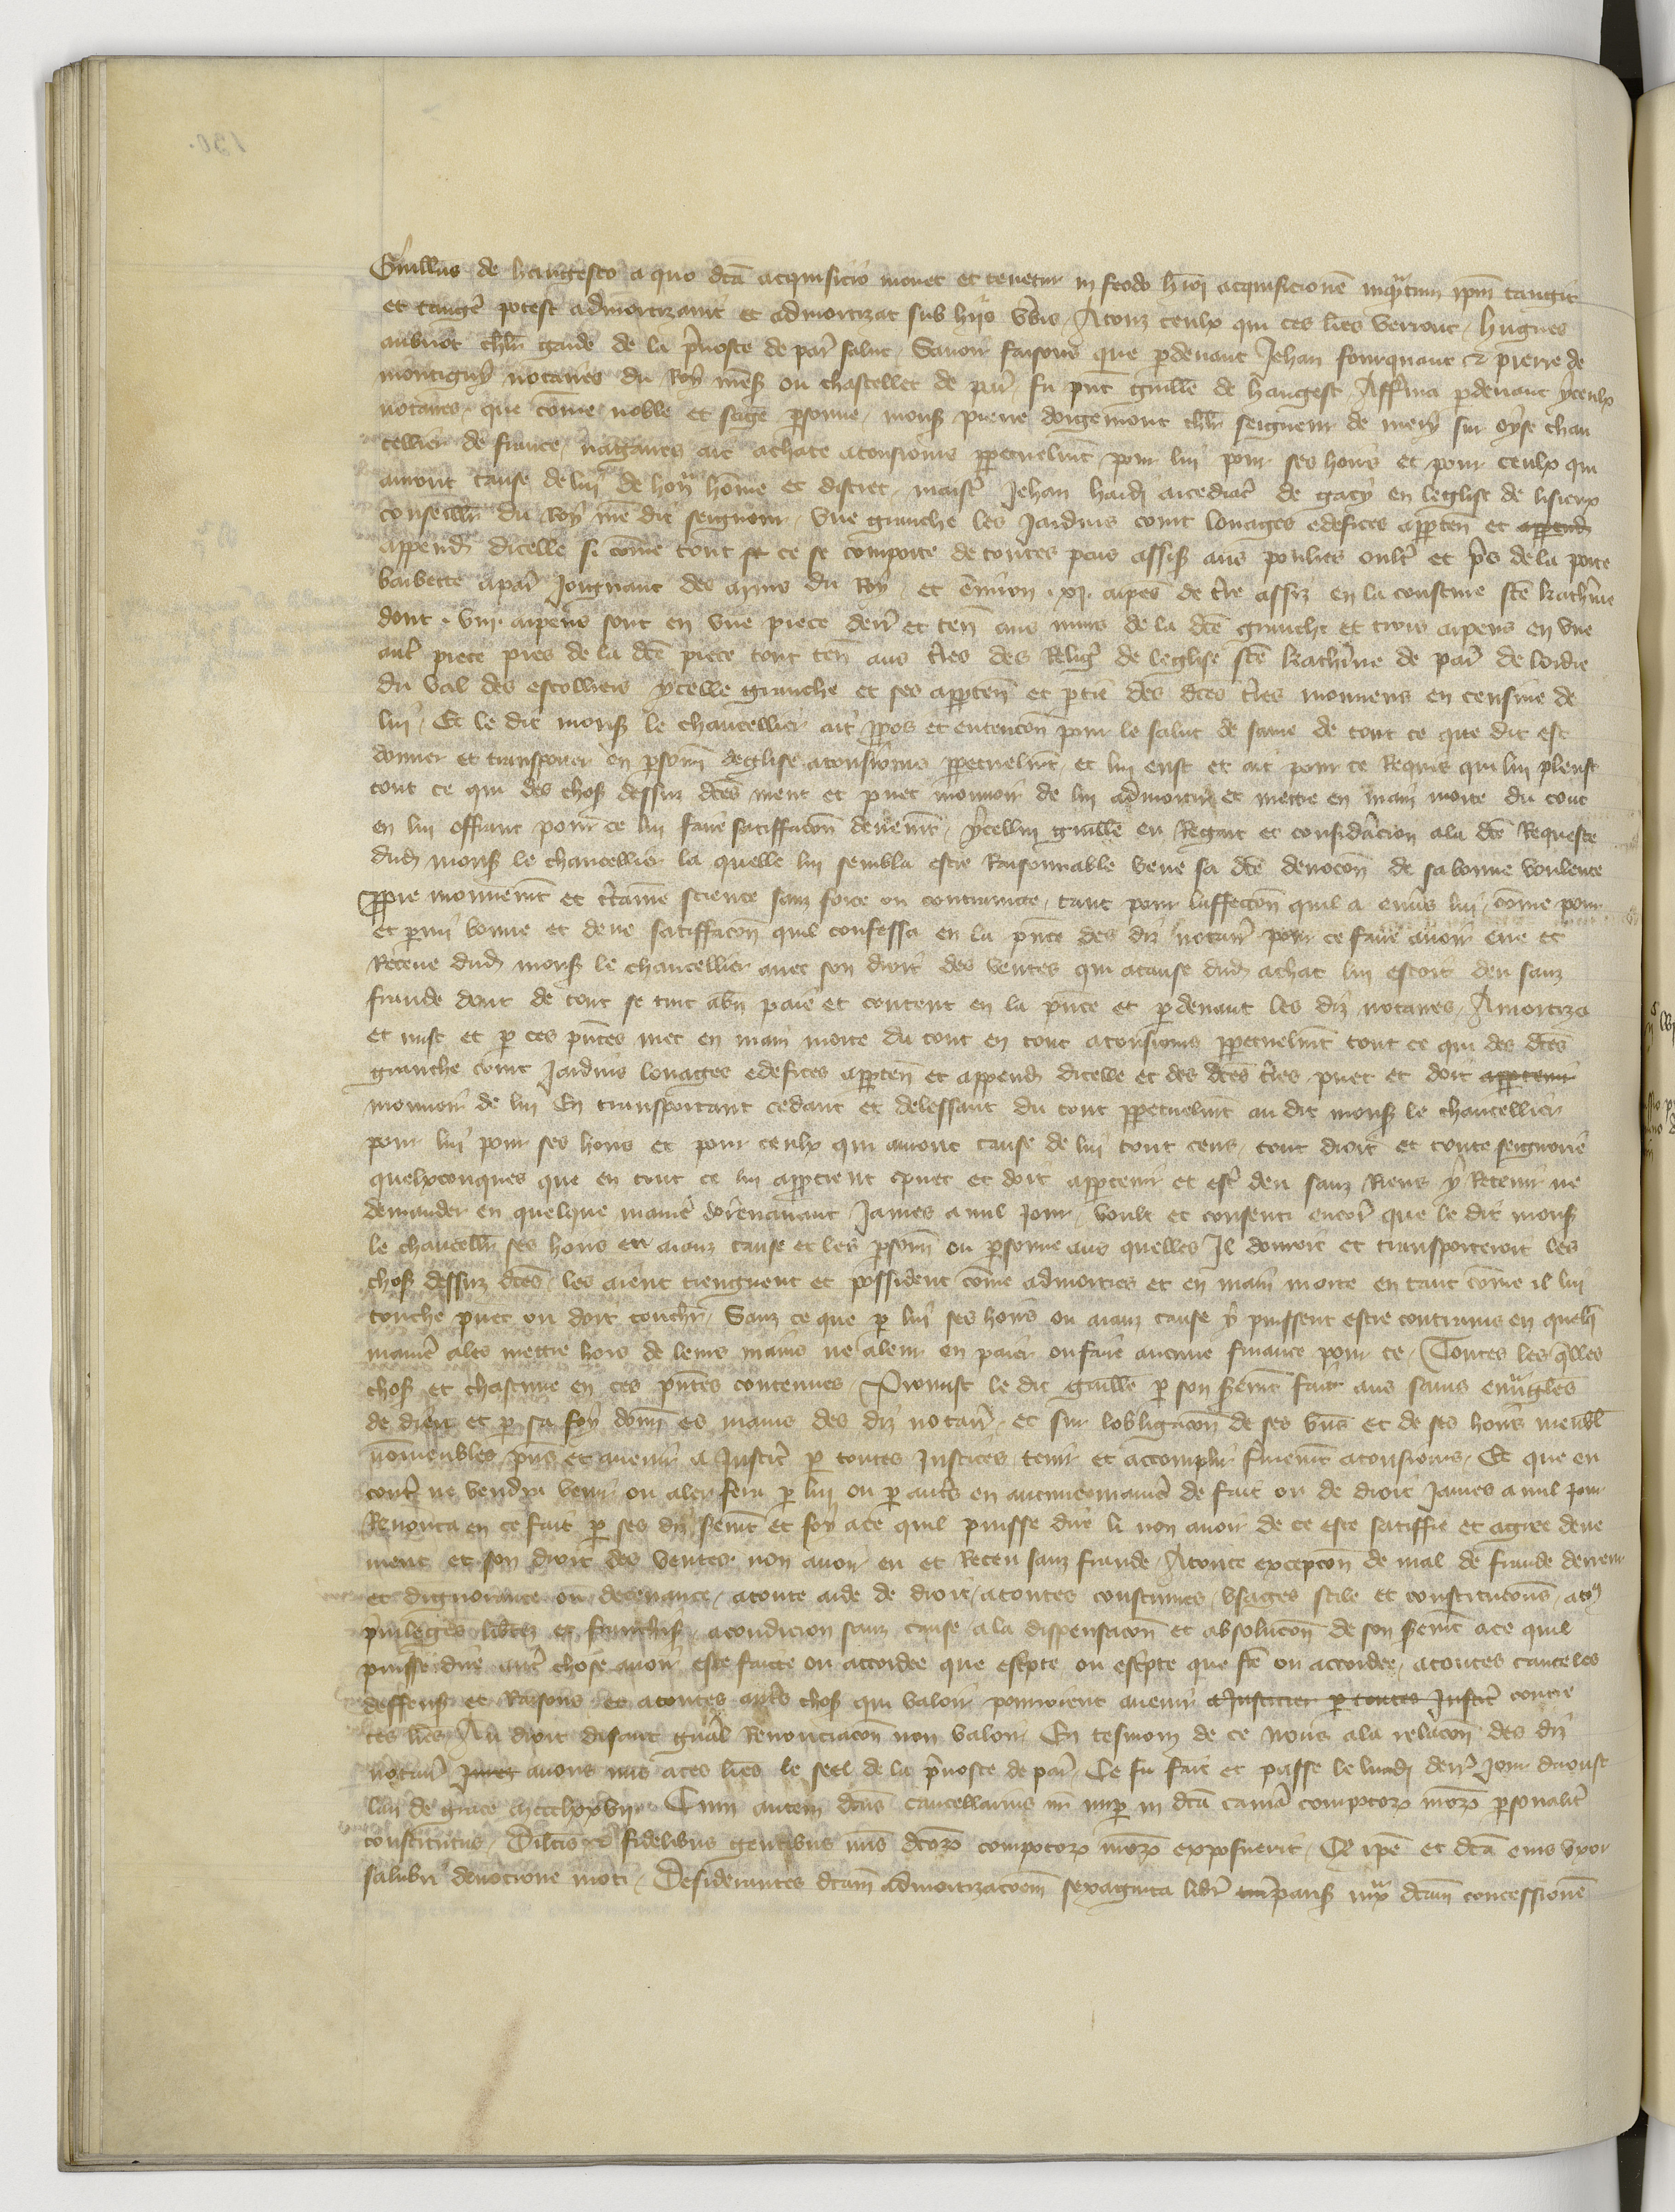 Guillus de hangesto a quo dca acquisicio movet et tenetur in feodo hmoi acquisicionem inquantum ipm tangit
et tangere potest admortizavit et admortizat sub hiis verbis A touz ceulx qui ces lres verront hugues
aubriot chlr garde de la prevoste de par salut Savoir faisons que pardevant Jehan fourquant et pierre de
montigny notaires du Roy nres ou chastellet de par fu pnt guille de hangest Afferma pardevant yceulx
notaires que come noble et sage psonne mons pierre dorgemont chlr seigneur de mery sur oyse chan
cellier de france nagaires ait achate a tousiours ppetuelmt pour lui pour ses hoirs et pour ceulx qui
auront cause de lui de hon home et discret maistr Jehan arcediacr de gacy en leglise de lisieux
conseillr du Roy nre dit seigneur une granche les Jardins court louages edefices apparten et append
append dicelle si come tout ce se comporte de toutes pars assiz aus poulies oultr et pres de la porte
barbette a par Joignant des murs du Roy et environ xi arpens de tre assiz en la cousture ste katherine
dont viii arpens sont en une piece derr et ten aus murs de la dce granche et trois arpens en une
autr piece pres de la dce piece tout ten aus tres des Relig de leglise ste katherine de par de lordre
du val des escolliers ycelle granche et ses apparten et ptie des dces tres mouvens en censive de
lui Et le dit mons le chancellier ait ppos et entencon pour le salut de same de tout ce que dit est
donner et transporter en psonn deglise a tousiours ppetuelmt et lui eust et ait pour ce Requis qui lui pleust
tout ce qui des chos dessuz dces meut et puet mouvoir de lui admortir et mettre en main morte du tout
en lui offrant pour ce lui faire satiffacon devemt ycellui guille eu Regart et consideracion a la dce Requeste
dud mons le chancellier la quelle lui sembla estre Raisonnable veue sa dce devocon de sa bonne voulente
ppre mouvemt et ctaine science sanz force ou contrainte tant pour laffeccon quil a envers lui come pour
et parmi bonne et deue satiffacon quil confessa en la pnce des diz notair pour ce faire avoir eue et
Receue dud mons le chancellier avec son droit des ventes qui a cause dud achat lui estoit deu sanz
fraude dont de tout se tint a bn paie et content en la pnce et pardevant les diz notaires Amortiza
et mist et par ces pntes met en main morte du tout en tout a tousiours ppetuelmt tout ce qui des dces
granche court Jardins louages edefices apparten et append dicelle et des dces tres puet et doit appartenir
mouvoir de lui En transportant cedant et delessant du tout ppetuelmt au dit mons le chancellier
pour lui pour ses hoirs et pour ceulx qui auront cause de lui tout cens tout droit et toute seignorie
quelxconques que en tout ce lui appartient puet et doit appartenir et estr deu sanz Riens y Retenir ne
demander en quelque manier dorenavant James a nul Jour voult et consenti encor que le dit mons
le chancellr ses hoirs et aianz cause et les psonn ou psonne aus quelles Il donroit et transporteroit les
chos dessuz dces les aient tiengnent et possident come admorties et en main morte en tant come il lui
touche puet ou doit touchr Sanz ce que par lui ses hoirs ou aianz cause y puissent estre contrains en quelq
manier a les mettre hors de leurs mains ne a leur en paier ou faire aucune finance pour ce Toutes les qlles
chos et chascune en ces pntes contenues Promist le dit guille par son seremt fait aus sains euvugles
de dieu et par sa foy donn es mains des diz notair et sur lobligacon de ses bns et de ses hoirs meubl
nonmeubles pns et avenir a Justicr par toutes Justices tenir et accomplir fermemt a tousiours Et que en
contr ne vendra venir ou aler fera par lui ou par autrs en aucune manier de fait ou de droit James a nul jour
Renonca en ce fait par ses diz seremt et foy a ce quil puisse dire li non avoir de ce este satiffie et agree deue
ment et son droit des ventes non avoir eu et Receu sanz fraude A toute excepcon de mal de fraude derreur
et dignorance ou decevance a toute aide de droit a toutes coustumes usages stile et constitucons a touz
privileges libtez et franchis a condicion sanz cause a la dispensacon et absolucon de son seremt a ce quil
puisse dire autr chose avoir este faicte ou accordee que escpte ou escpte que fte ou accordee a toutes cauteles
deffens et Raisons et a toutes autrs chos qui valoir pourroient avenir a Justicier par toutes Justic contre
ces lres Au droit disant gnal Renonciacon non valoir En tesmoin de ce Nous a la relacon des diz
notair avons mis a ces lres le seel de la prevoste de par Ce fu fait et passe le lundi derr jour daoust
lan de grace mccclxxvii Cum autem dcus cancellarius nr nuper in dca camera compotorum nrorum psonaliter
constitutus Dilcis et fidelibus gentibus nris dcorum compotorum nrorum exposuerit Quod ipe et dca eius uxor
salubri devocione moti Desiderantes dcam admortizacoem sexaginta libr paris iuxta dcam concessionem